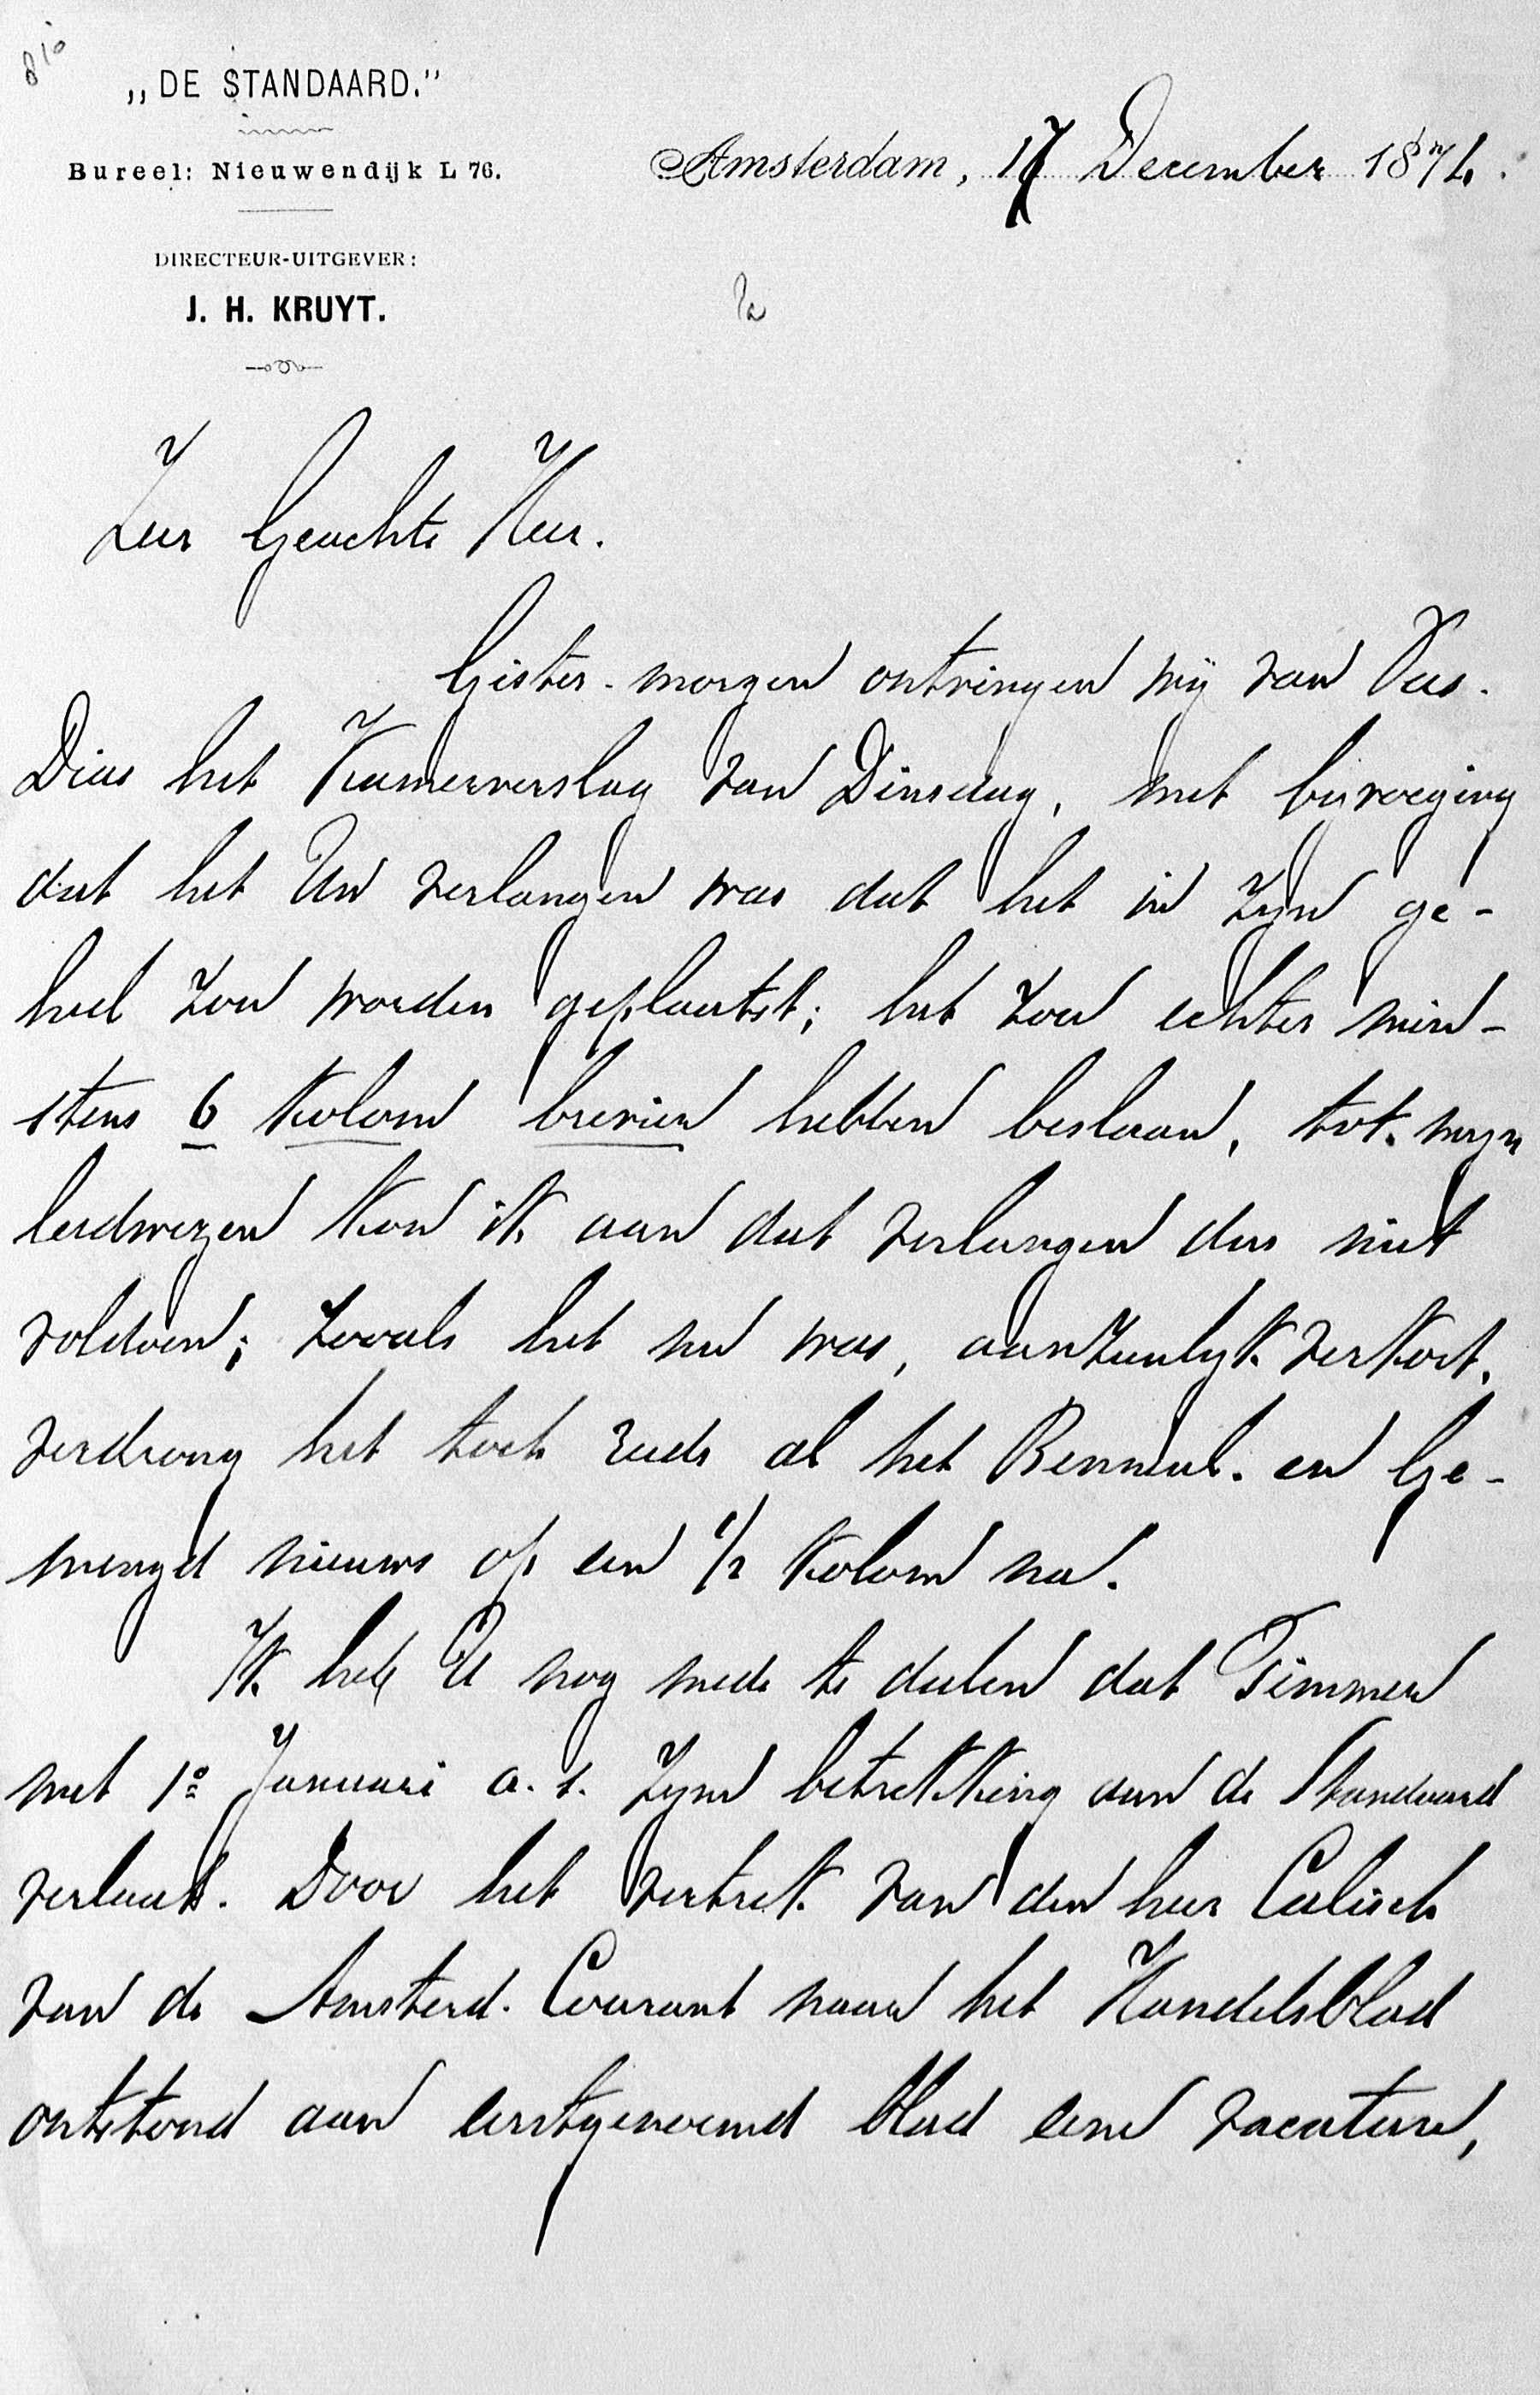 810
„DE STANDAARD.”
Bureel: Nieuwendijk L 76.
Amsterdam, 17 December 1874.
DIRECTEUR-UITGEVER:
J. H. KRUYT.
Zeer Geachte Heer.
Gister-morgen ontvingen wij van Vas.
Dias het Kamerverslag van Dinsdag, met bijvoeging
dat het Uw verlangen was dat het in zijn ge-
heel zou worden geplaatst; het zou echter min-
stens 6 kolom brevier hebben beslaan, tot mijn
leedwezen kon ik aan dat verlangen dus niet
voldoen; zooals het nu was, aanzienlijk verkort,
verdrong het toch reeds al het Binnenl. en Ge-
mengd nieuws op een 1/2 kolom na.
Ik heb U nog mede te deelen dat Timmer
met 1o Januari a.s. zijne betrekking aan de Standaard
verlaat. Door het vertrek van den heer Calisch
van de Amsterd. Courant naar het Handelsblad
ontstond aan eerstgenoemd blad eene vacature,